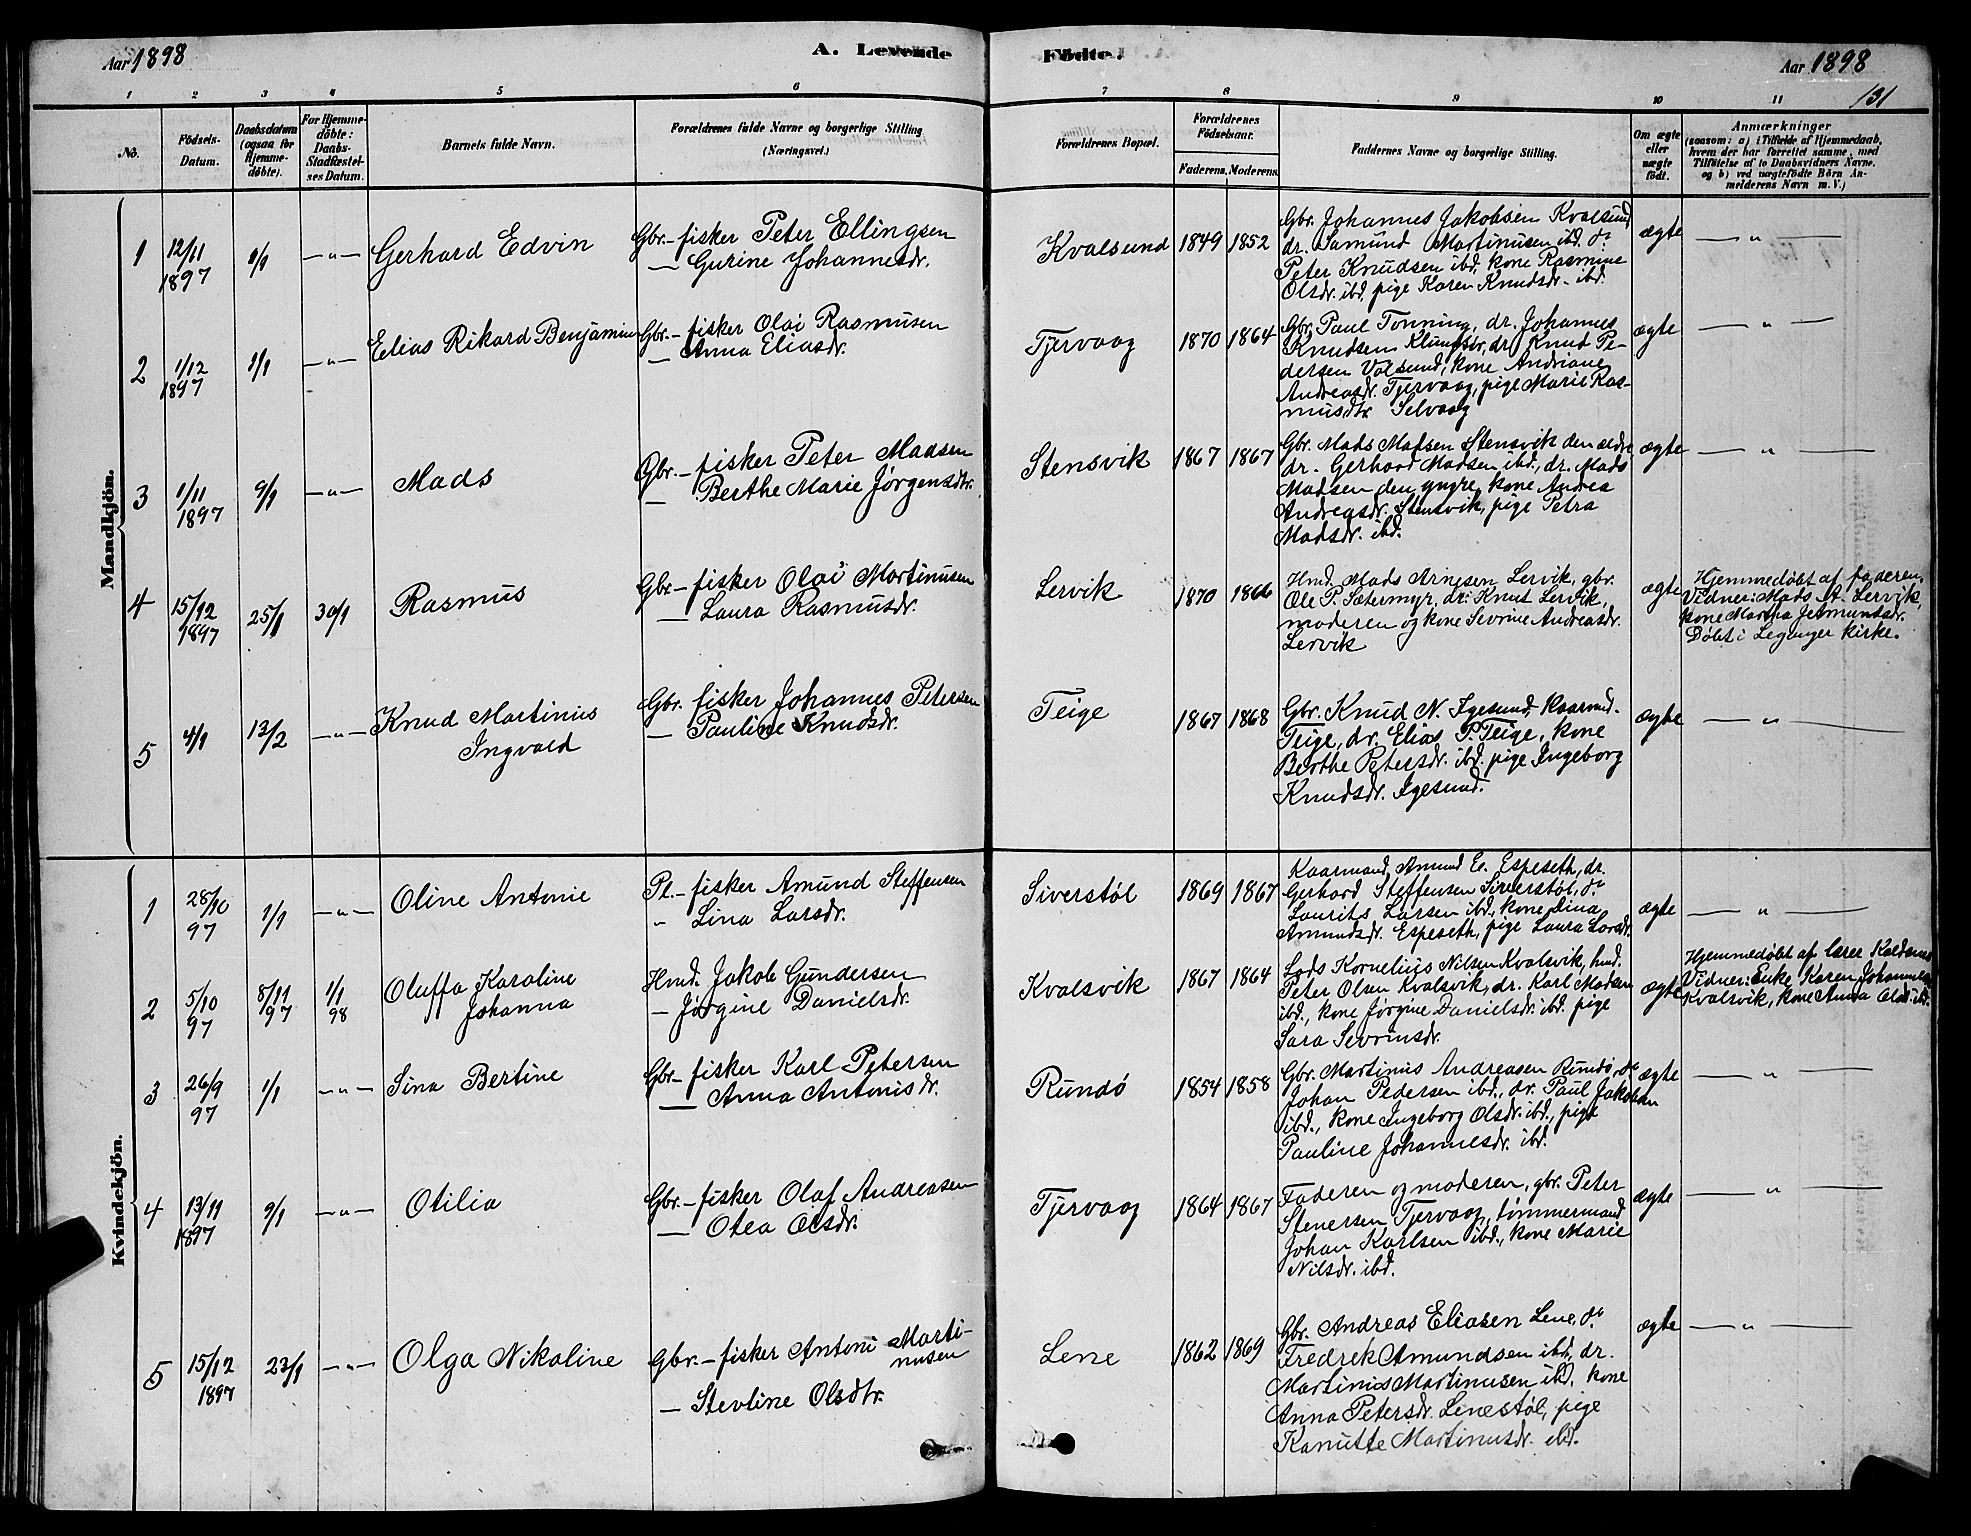 Aar 1898
A. Levende
Födte.
Aar 1898
131
1 2 3 4 5 6 7 8 9 10 11
No.
Födsels-
Datum.
Daabsdatum
(ogsaa for
Hjemme-
döbte).
For Hjemme-
döbte:
Daabs-
Stadfæstel-
ses Datum.
Barnets fulde Navn.
Forældrenes fulde Navne og borgerlige Stilling
(Næringsvei.)
Forældrenes Bopæl.
Forældrenes
Födselsaar.
Faderens. Moderens.
Faddernes Navne og borgerlige Stilling.
Om ægte
eller
uægte
födt.
Anmærkninger
(saasom: a) i Tilfælde af Hjemmedaab,
hvem der har forrettet samme, med
Tilföielse af to Daabsvidners Navne.
og b) ved uægtefödte Börn An-
melderens Navn m. V.)
Mandkjön.
1 12/11 1897 1/1 — " — Gerhard Edvin
Gbr.- fisker Peter Ellingsen
— Gurine Johannesdr.
Kvalsund 1849 1852
Gbr. Johannes Jakobsen Kvalsund
dr. Samund Martinusen ibd. do
Peter Knudsen ibd, kone Rasmine
Olsdr. ibd, pige Karen Knudsdr. ibd.
ægte — " —
2 1/12 1897 1/1 — " — Elias Rikard Benjamin
Gbr.- fisker Olai Rasmusen
— Anna Eliasdr.
Tjervaag 1870 1864
Gbr. Paul Tonning, dr. Johannes
Knudsen Klungsør, dr. Knud Pe-
dersen Volsund, kone Andriane
Andreasdr. Tjervaag, pige Marie Ras-
musdtr. Selvaag
ægte — " —
3 1/11 1897 9/1 — " — Mads
Gbr.- fisker Peter Madsen
— Berthe Marie Jørgensdtr.
Stensvik 1867 1867
Gbr. Mads Madsen Stensvik den ældre
dr. Gerhard Madsen ibd., dr. Mads
Madsen den yngre, kone Andrea
Andreasdr. Stensvik, pige Petra
Madsdr. ibd.
ægte — " —
4 15/12 1897 25/1 30/1 Rasmus
Gbr.- fisker Olai Martinusen
— Laura Rasmusdr.
Lervik 1870 1866
Hmd. Mads Arnesen Lervik, gbr.
Ole P. Sætermyr, dr. Knut Lervik,
moderen og kone Sevrine Andreasdr.
Lervik
ægte
Hjemmedøbt af faderen.
Vidner: Mads A. Lervik,
kone Martha Jetmundsdr.
Døbt i Leganger kirke.
5 4/1 13/2 — " — Knud Martinius
Ingvald
Gbr. fisker Johannes Petersen
— Pauline Knudsdr.
Teige 1867 1868
Gbr. Knud N. Igesund, kaarmd.
Teige, dr. Elias P. Teige, kone
Berthe Petersdr. ibd. pige Ingeborg
Knudsdr. Igesund.
ægte — " —
Kvindekjön.
1 28/10 97 1/1 — " — Oline Antonie
Pl.- fisker Amund Steffensen
" Lina Larsdr.
Siverstøl 1869 1867
Kaarmand Amund E. Espeseth, dr.
Gerhard Steffensen Siverstøl, do
Laurits Larsen ibd., kone Lina
Amundsdr. Espeseth, pige Laura Larsdr.
ægte — " —
2 5/10 97 8/11 97 1/1 98 Oluffa Karoline
Johanna
Hmd. Jakob Gundersen
— Jørgine Danielsdr.
Kvalsvik 1867 1864
Lods Kornelius Nilsen Kvalsvik, hmd.
Peter Olsen Kvalsvik, dr. Karl Madsen
ibd., kone Jørgine Danielsdr. ibd. pige
Sara Sevrinsdr.
ægte
Hjemmedøbt af lærer Koldernes
Vidner: Enke Karen Johannesdr.
Kvalsvik, kone Anna Olsdr. ibd.
3 26/9 97 1/1 — " — Sina Bertine
Gbr- fisker Karl Petersen
— Anna Antonisdr.
Rundö 1854 1858
Gbr. Martinus Andreasen Rundö, do
Johan Pedersen ibd., dr. Paul Jakobsen
ibd., kone Ingeborg Olsdr. ibd., pige
Pauline Johannesdr. ibd.
ægte — " —
4 13/11 1897 9/1 — " — Otilia
Gbr.- fisker Olaf Andreasen
— Otea Olsdr.
Tjervaag 1864 1867
Faderen og moderen, gbr. Peter
Stenersen Tjervaag, tømmermand
Johan Karlsen ibd., kone Marie
Nilsdr. ibd.
ægte — " —
5 15/12 1897 23/1 — " — Olga Nikoline
Gbr.- fisker Antoni Marti-
nusen
— Stevline Olsdtr.
Lene 1862 1869
Gbr. Andreas Eliasen Lene, do
Fredrek Amundsen ibd., dr.
Martinus Martinusen ibd, kone
Anna Petersdr. Lenestøl, pige
Kanutte Martinusdr. ibd.
ægte — " —